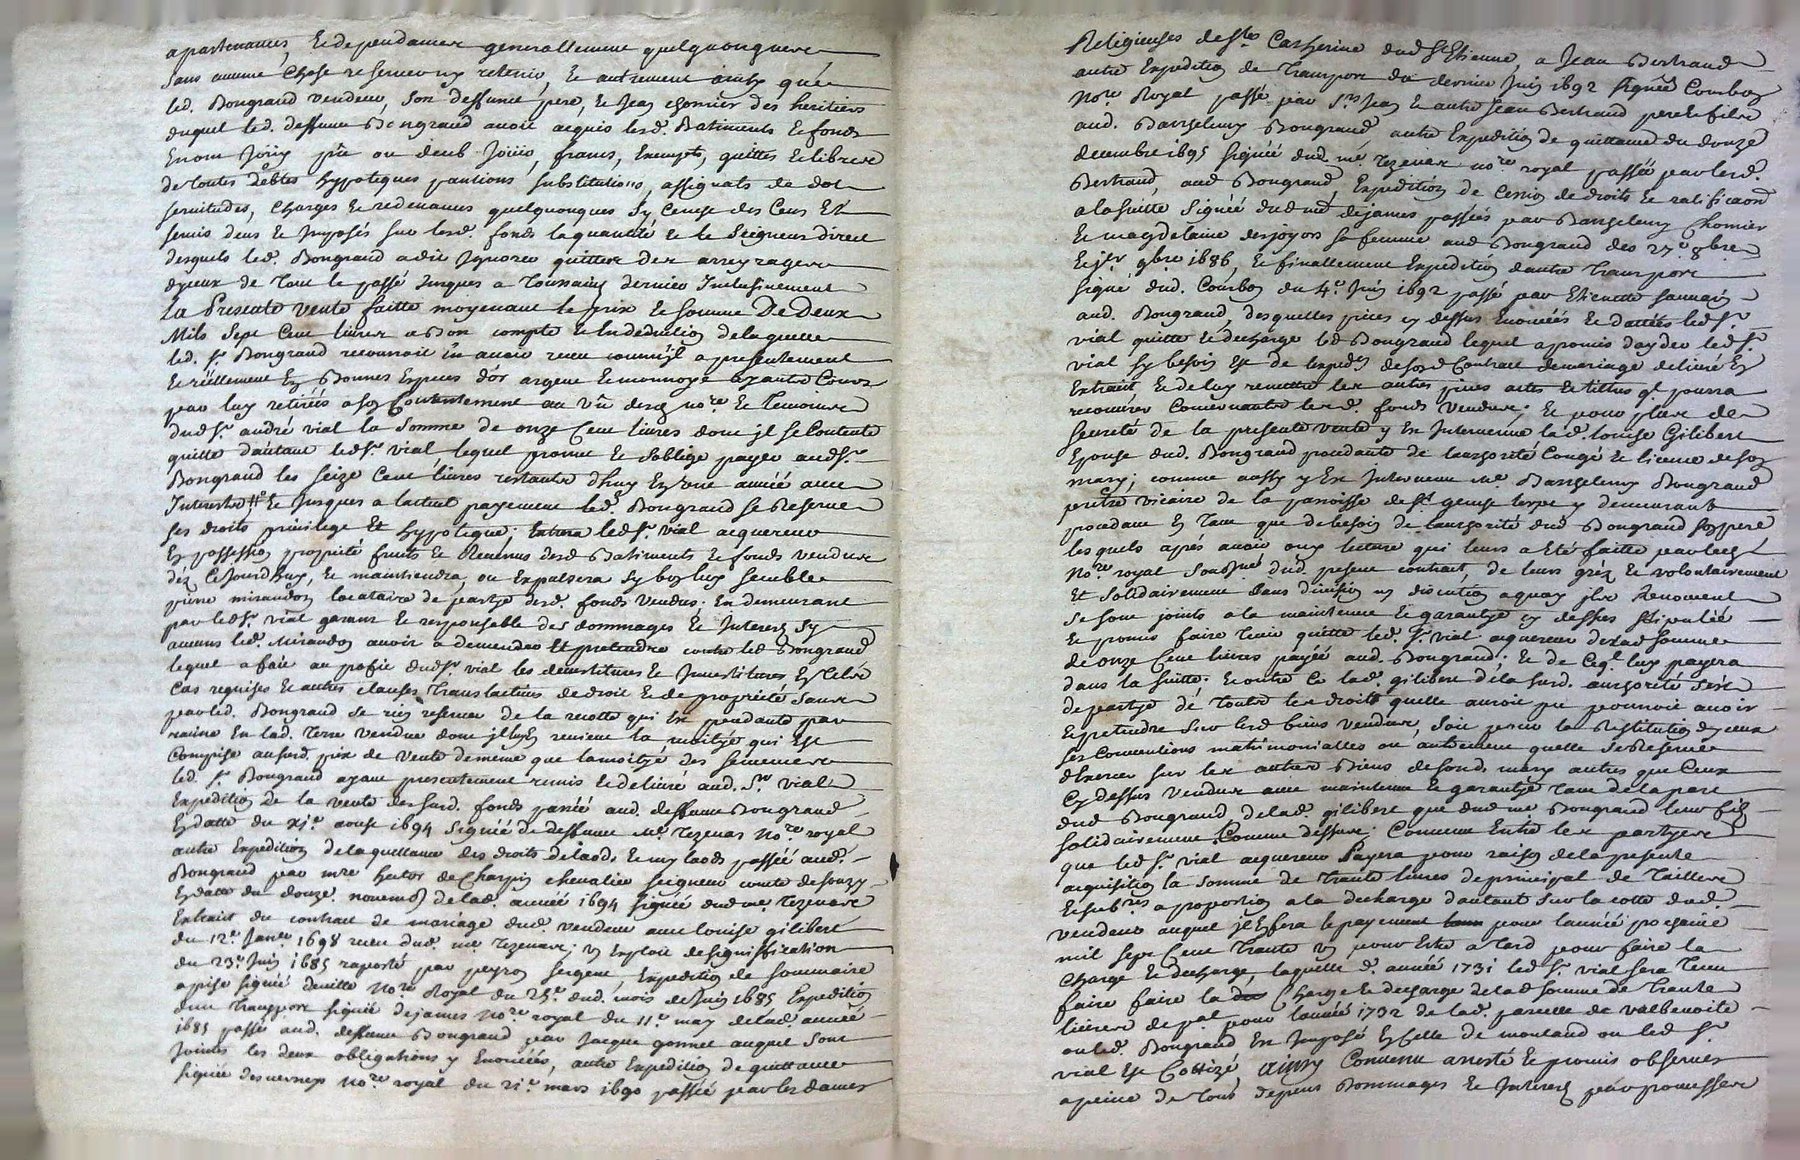 apartenances, Et dependances generallement quelquonques
sans aucune chose reserver ny retenir, Et autrement ainsy que
led. Bongrand vendeur, son deffunct pere, Et Jean chomier des heritiers
duquel led. deffunct Bongrand avoit acquis lesd. Batiments Et fonds
En ont Joüy pû ou deub Joüir, francs, Exempts, quittes Et libres
de toutes debtes hypoteques pantions substitutions, assignats de dot
servitudes, charges Et redevances quelquonques sy Ce n'est des Cens Et
servis deus Et Imposés sur lesd. fonds la quantité Et le Seigneur direct
desquels led. Bongrand a dit Ignorer quittes des arreyrages
d'yceux de tout le passé Jusques a Toussaint dernier Inclusivement
La Presente vente faitte moyenant le prix Et somme De Deux
Mils Sept Cent livres a Bon compte Et En deduction de laquelle
led. Sr. Bongrand reconnoit En avoir receu comme Il a presentement
Et réellement En Bonnes Especes d'or argent Et monnoye ayants Cours
par luy retirées a son Contentement au vû desd. nore. Et Temoins
dud. Sr. andré vial la Somme de onze Cent livres dont Il se Contente
quitte d'autant led. Sr. vial lequel promet Et s'oblige payer aud. Sr.
Bongrand les seize Cent livres restantes d'huy En une année avec
Interests Et Jusques a l'actuel payement led. Bongrand se Reserve
ses droits privilege Et hypoteque; led. Sr. vial acquereur
En possession proprieté fruits Et Revenus desd. Batiments Et fonds vendus
déz Ce Jourd'huy, Et maintiendra, ou Expulsera sy bon luy semble
pierre mirandon locataire de partye desd. fonds vendus. En demeurant
par led. Sr. vial garant Et responsable des dommages Et Interets sy
aucuns led. Mirandon avoit a demander Et pretendre contre led. Bongrand
lequel a fait au profit dud. Sr. vial les devestitures Et Investitures En tel
Cas requises Et autres clauses Translatives de droit Et de proprieté sans
par led. Bongrand se rien reserver de la recolte qui Est pendante par
racine En lad. Terre vendue dont Il luy revient la moitié qui Est
Comprise ausd. prix de vente de meme que la moitié des semences
led. Sr. Bongrand ayant presentement remis Et delivré aud. Sr. vial
Expedition de la vente desd. fonds passée aud. deffunct Bongrand
En datte du xje. aoust 1694 Signée de deffunct Me. Tezenas Nore. royal
autre Expedition de la quittance des droits de laods Et my laods passée aud.
Bongrand par mre hector de Charpin chevalier seigneur comte de souzy
En datte du douze novembre de lad. année 1694 signée dud. me. Tezenas
Extrait du contrait de mariage dud. vendeur avec louise gilibert
du 12e. Janer. 1698 receu dud. me. Tezenas; un Exploit de signiffication
du 23e. Juin 1685 raporté par peyron sergent, Expedition de sommaire
aprise signée deville Nore Royal du 25e. dud. mois de Juin 1685 Expedition
d'un Transport signée dejames nore. royal du 11e. may de lad. année
1685 passé aud. deffunct Bongrand par Jacque gonnet auquel sont
Jointes les deux obligations y Enoncées, autre Expedition de quittance
signée desverneys Nore. royal du 21e. mars 1690 passée par les dames
Religieuses de Ste. Catherine dud. St. Etienne, a Jean Bertrand
autre Expedition de Transport du dernier Juin 1692 signée Courbon
Nore. Royal passé par Srs. Jean Et autre Jean Bertrand pere Et fils
aud. Barthelemy Bongrand autre Expedition de quittance du douze
decembre 1695 signée dud. me. Tezenas nore. royal passée par led.
Bertrand, aud. Bongrand, Expedition de Cession de droits Et ratification
a la suitte signée dud. me. dejames passées par Barthelemy Chomier
Et magdelaine desjoyaux sa femme aud. Bongrand des 27e. 8bre
Et jer. 9bre 1686, Et finallement Expedition d'autre Transport
signé dud. Courbon du 4e. Juin 1692 passé par Etiennette
aud. Bongrand, desquelles pieces cy dessus Enoncées Et dattées led. Sr.
vial quitte Et decharge led. Bongrand lequel a promis d'ayder led. Sr.
vial sy besoin Est de l'expedon. de son Contract de mariage delivré En
Extrait, Et de luy remettre les autres pieces actes Et tittres qil pourra
recouvrer Concernants lesd. fonds vendus; Et pour plus de
seureté de la presente vente y Est Intervenue lad. louise Gilibert
Epouse dud. Bongrand procedante de l'authorité Congé Et licence de son
mary; comme aussy y Est Intervenu Me. Barthelemy Bongrand
prêtre vicaire de la paroisse de St. genest lerpt y demeurant
procedant En tant que de besoin de l'authorité dud. Bongrand son pere
lesquels après avoir ouy lecture qui leurs a Eté faitte par led.
Nore. royal soussigné dud. present contract, de leurs gréz Et volontairement
Et solidairement sans division ny discution a quoy Ils Renoncent
se sont joints a la maintenue Et garantye cy dessus stipulée
Et promis faire tenir quitte led. Sr. vial acquereur de lad. somme
de onze Cent livres payée aud. Bongrand; Et de Ce qil luy payera
dans la suitte. Et outre Ce lad. gilibert de la susd. authorité s'est
departye de toutes les droits quelle auroit pu pourroit avoir
Et pretendre sur lesd. biens vendus, soit pour la Restitution d'yceux
ses Conventions matrimonialles ou autrement quelle se Reserve
d'Exercer sur les autres Biens de sond. mary autres que Ceux
Cy dessus vendus avec maintenue Et garantye tant de la part
dud. Bongrand de lad. gilibert que dud. me Bongrand leur fils
solidairement Comme dessus; Convenu Entre les partyes
que led. Sr. vial acquereur Payera pour raison de la presente
acquisition la somme de trante livres de principal de Tailles
Et subres a proportion a la decharge d'autant sur la cotte dud.
vendeur auquel Il En fera le payement pour l'année prochaine
mil sept Cent Trante un pour Estre a tard pour faire la
Charge Et decharge, laquelle d. année 1731 led. Sr. vial sera tenu
faire faire la Charge Et decharge de lad. somme de Trante
livres de pal. pour l'année 1732 de lad. parcelle de valbenoite
ou led. Bongrand Est Imposé En Celle de montaud ou led. Sr.
vial Est Cottizé Ainsy Convenu arresté Et promis observer
a peine de tous depens Dommages Et Interets par promesses